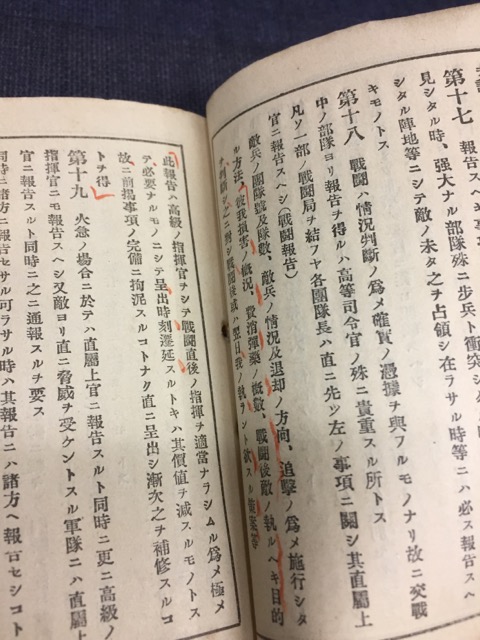 第十七 報告スヘ
見シタル時、強大ナル部隊殊ニ步兵ト衝突シ
シタル陣地等ニシテ敵ノ未タ之チ占領シ在ラサル時等ニハ必ス報告スヘ
キモノトス
第十八 戰鬪ハ情況判斷ノ爲メ確實ノ憑據チ與フルモノナリ故ニ交戰
中ノ部隊ヨリ報告チ得ルハ高等司令官ノ殊ニ貴重スル所トス
凡ソ一部ノ戰鬪局チ結フヤ各團隊長ハ直ニ先ツ左ノ事項ニ關シ其直屬上
官ニ報告スヘシ(戰鬪報告)
敵兵ノ團隊號及隊數、敵兵ノ情況及退却ノ方向、追擊ノ爲メ施行シタ
ル方法、彼我損害ノ概況、費消彈藥ノ概數、戰鬪後敵ノ執ルヘキ目的
ノ判斷、之ニ對シ戰鬪後或ハ翌日我ノ執ラント欲スル 等
此報告ハ高級ノ指揮官チシテ戰鬪直後ノ指揮チ適當ナラシムル爲メ極メ
テ必要ナルモノニシテ呈出時刻遷延スルトキハ其價値チ減スルモノトス
故ニ前揭事項ノ完備ニ拘泥スルコトナク直ニ呈出シ漸次之チ補修スルコ
トチ得
第十九 火急ノ場合ニ於テハ直屬上官ニ報告スルト同時ニ更ニ高級ノ
指揮官ニモ報告スヘシ又敵ヨリ直ニ脅威チ受ケントスル軍隊ニハ直上
官ニ報告スルト同時ニ之ニ通報スルチ要ス
同時ニ諸方ニ報告セサル可ラサル時ハ其報告ニハ諸方ヘ報告セシコト